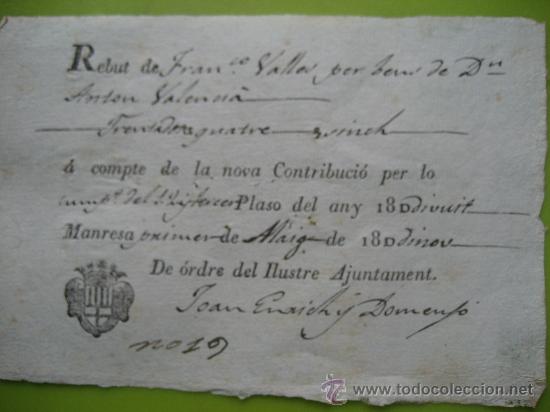 Rebut de Franco Valles per bens de Dn
Anton Valencia
quatre sinch
á compte de la nova Contribució per lo
tercer Plaso del any 18 Ddivuit
Manresa primer de Maig de 18 Ddinou
De órdre del Ilustre Ajuntament.
Joan Enrich y Domenjó
no 19
www.todocoleccion.net